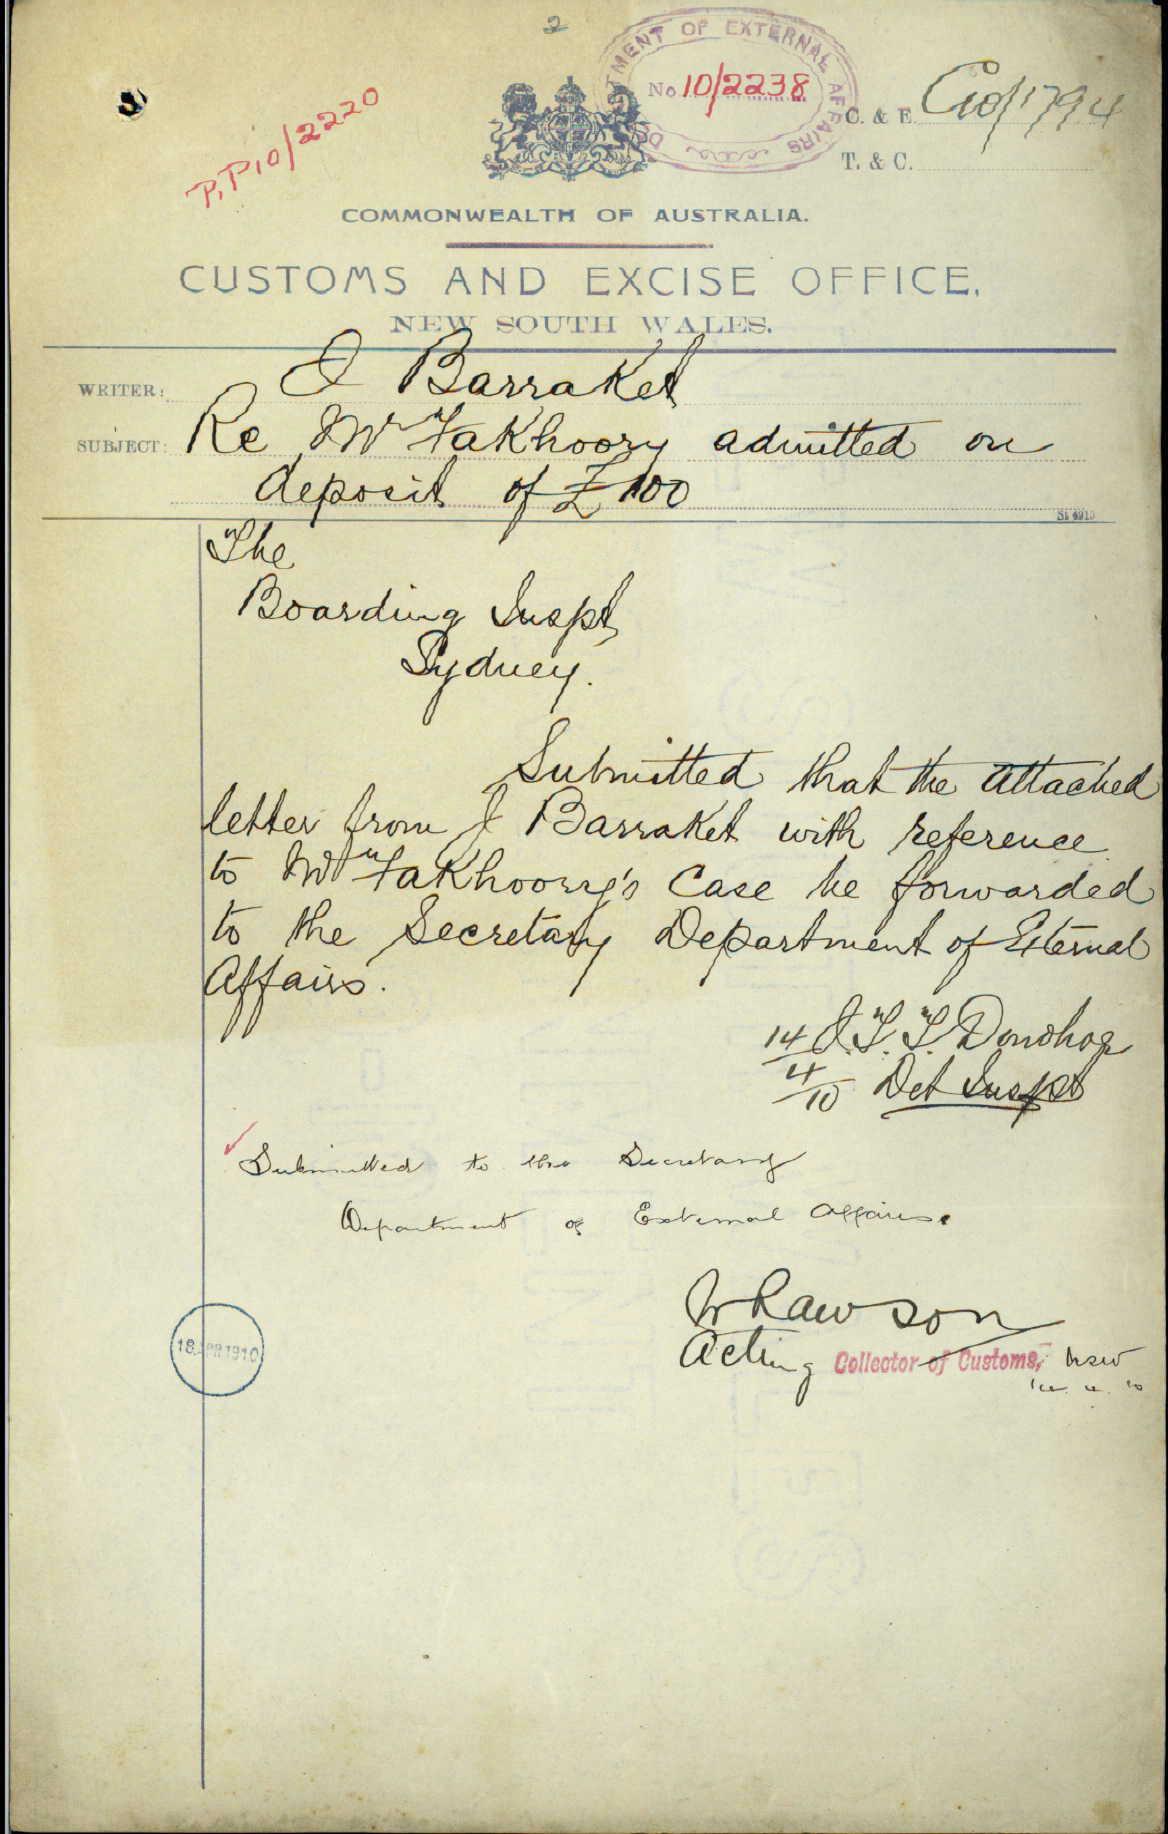 2
DEPARTMENT OF EXTERNAL AFFAIRS
No 10/2238
P.P. 10/2220
C. & E. C10/1794
T. & C.
COMMONWEALTH OF AUSTRALIA.
CUSTOMS AND EXCISE OFFICE,
NEW SOUTH WALES.
WRITER: J Barraket
SUBJECT: Re Mr Fakhoory admitted on
deposit of £100
St 4913
The
Boarding Inspt
Sydney.
Submitted that the attached
letter from J Barraket with reference
to Mr Fakhoory's Case be forwarded
to the Secretary Department of External
Affairs.
14/4/10 J. T. T. Donohoe
Det Inspt
Submitted to the Secretary
Department of External Affairs.
Lawson
Acting Collector of Customs, NSW
14. 4. 10
18 APR 1910